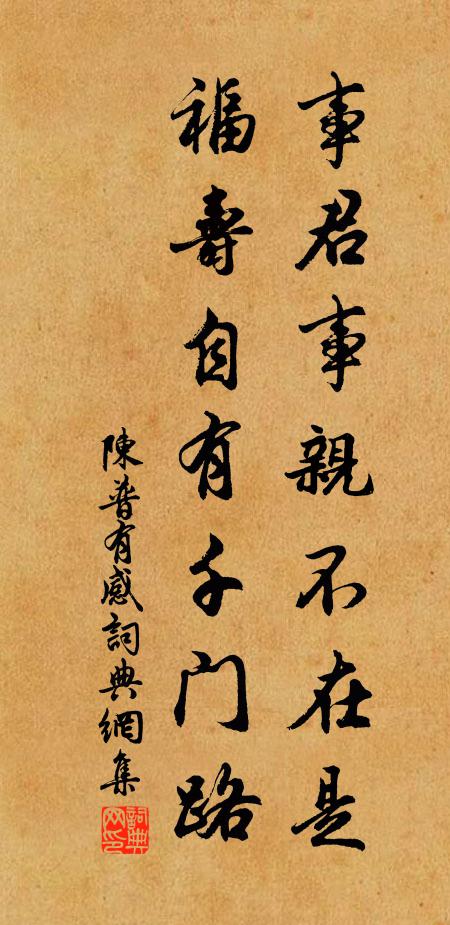 事君事親不在是
福壽自有千门路
陳普有感詞典網集
詞典网印